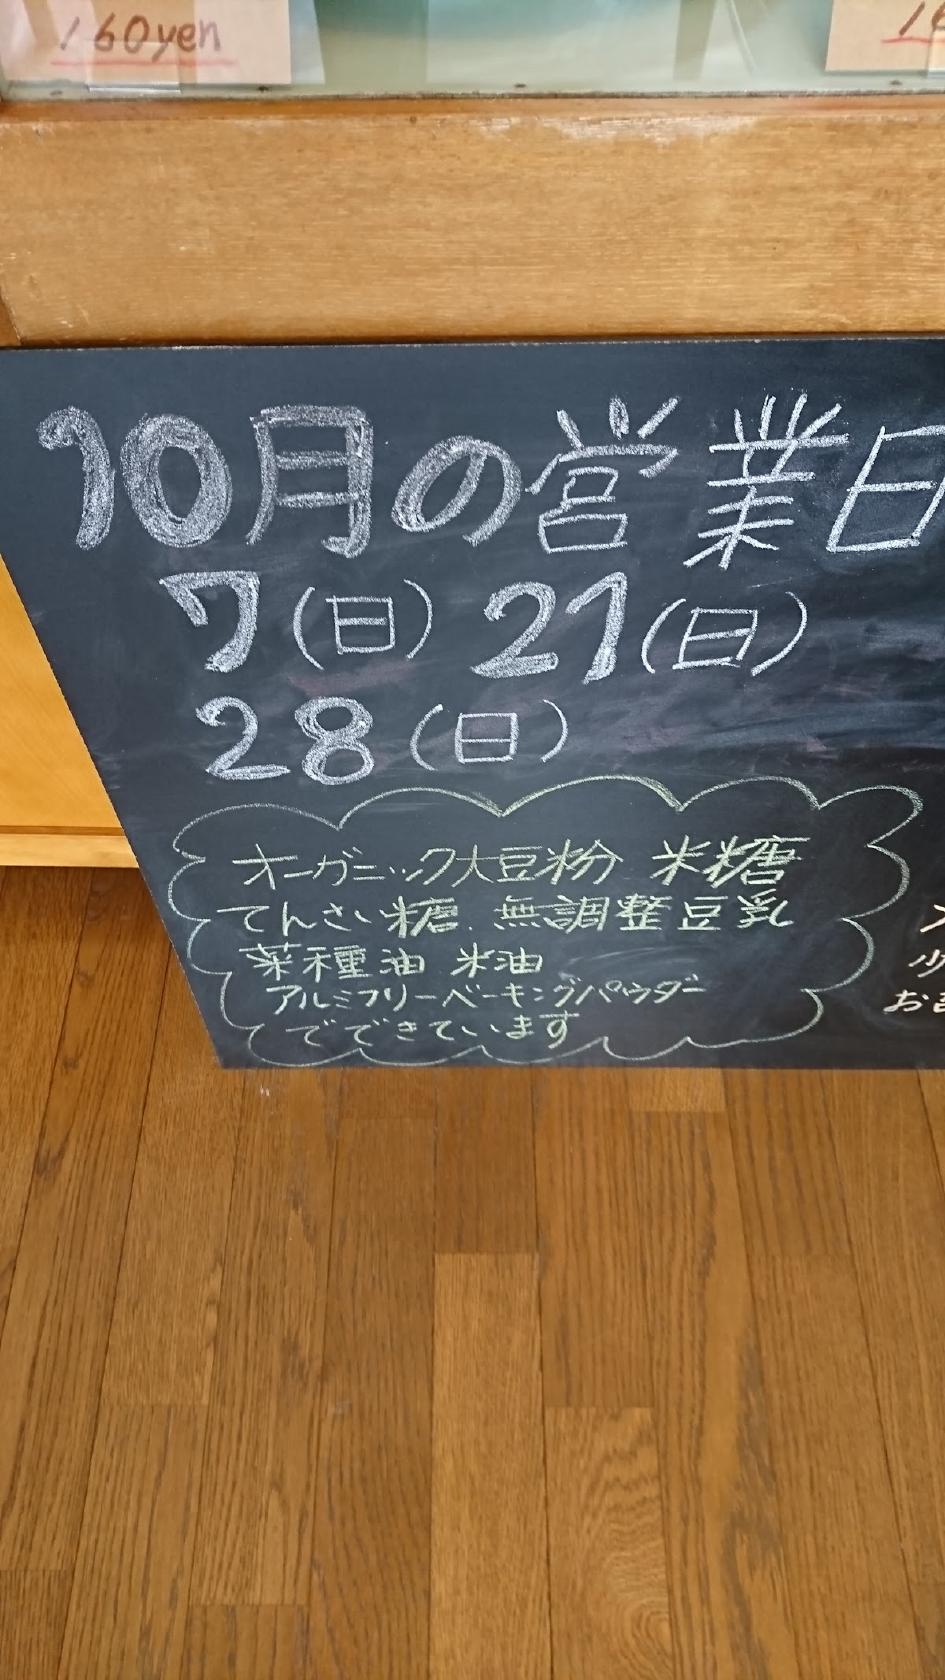 160yen
10月の営業日
7(日) 21(日)
28(日)
オーガニック大豆粉 米糖
てんさい糖、無調整豆乳
菜種油 米油
アルミフリーベーキングパウダー
でできています
少
お